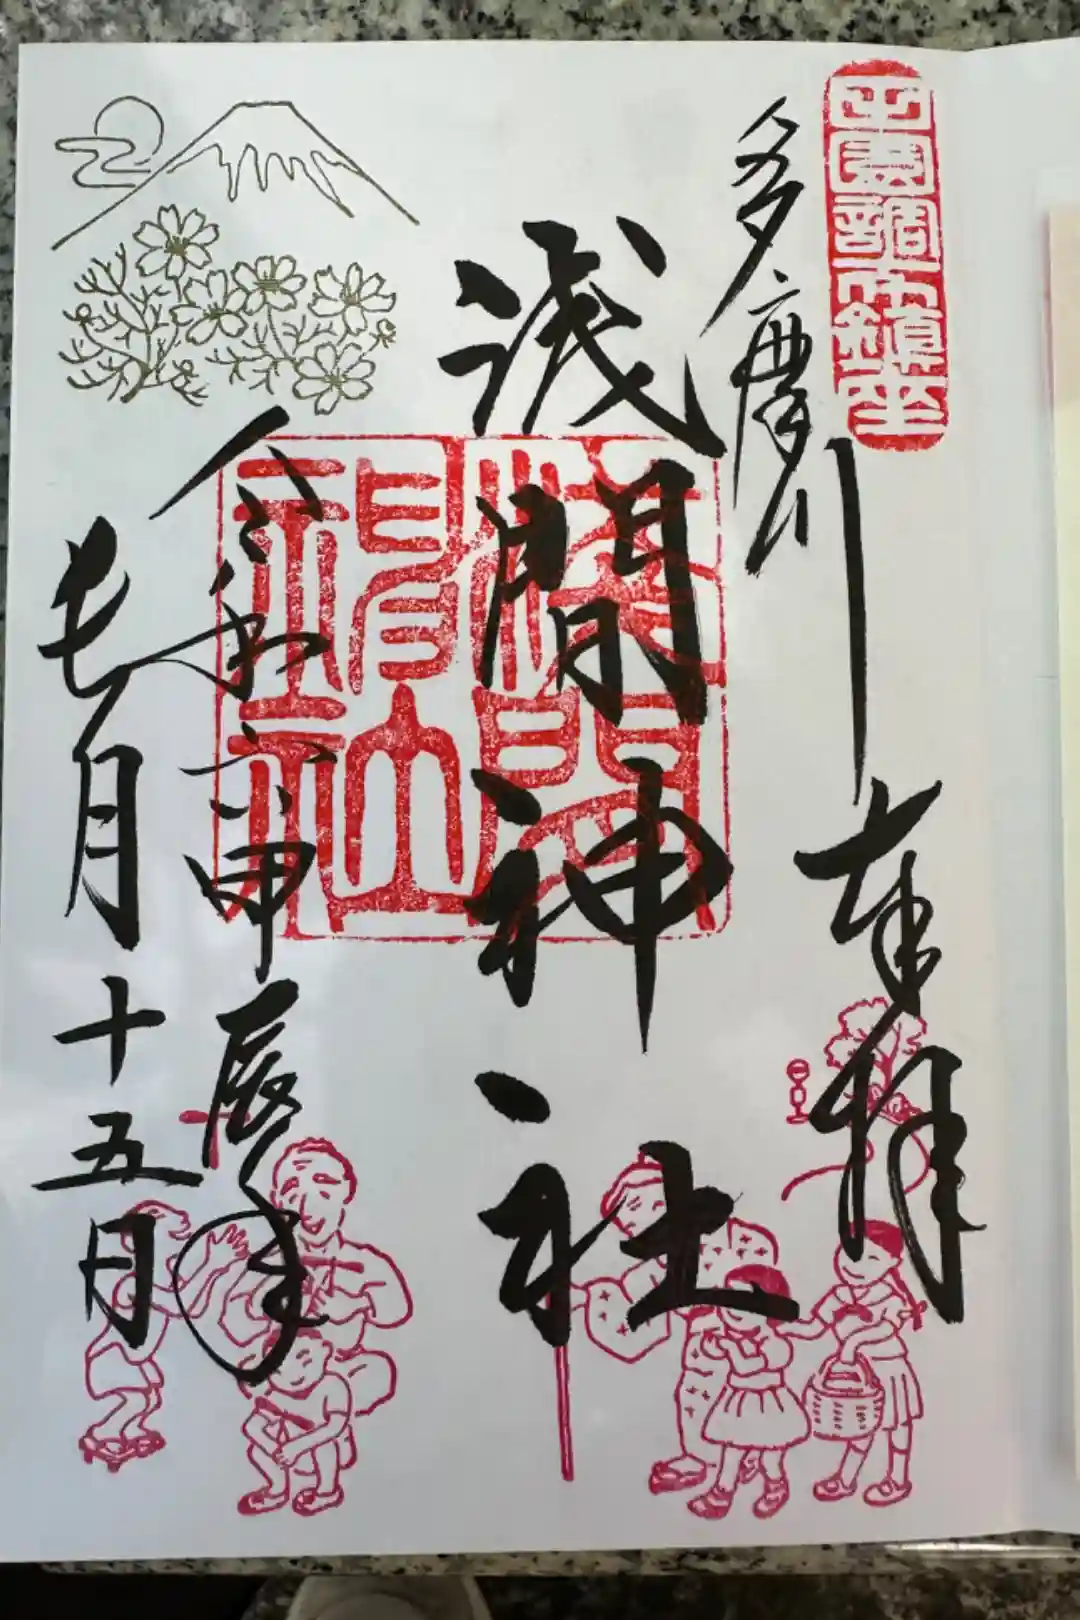 田園調布鎮座
奉拝
多摩川
浅間神社
淺間神社
令和六甲辰年
七月十五日